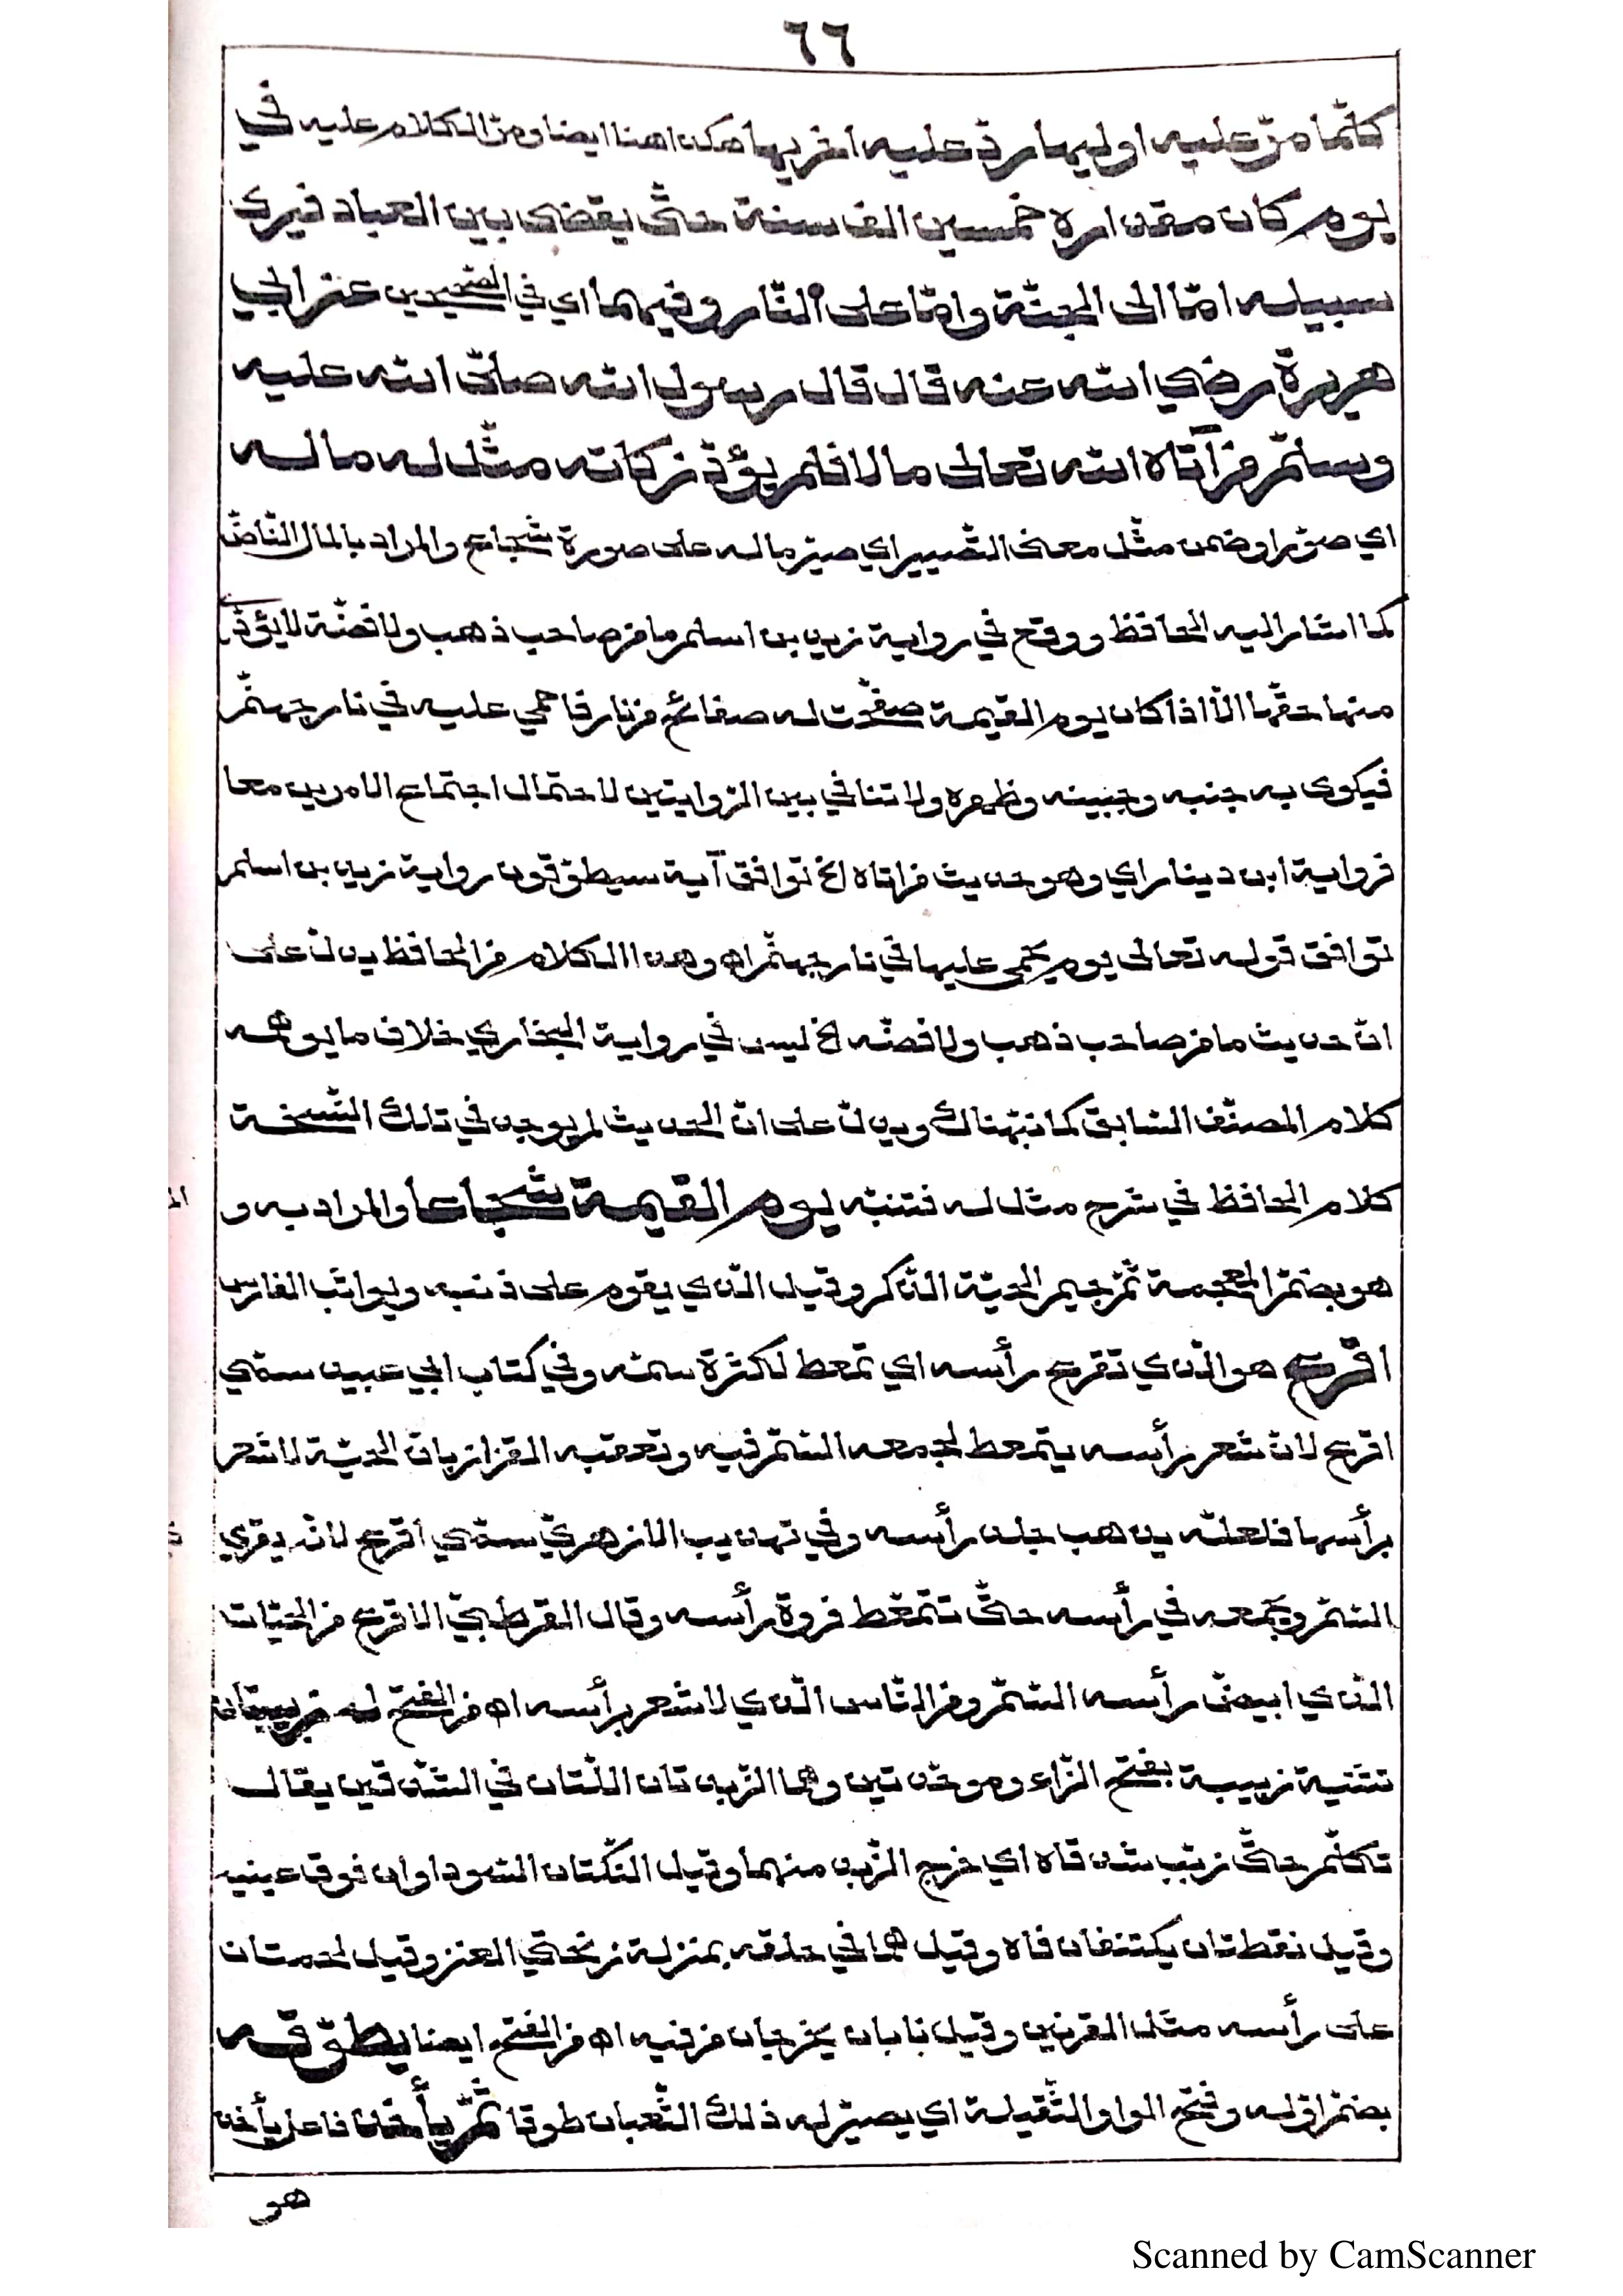 ٦٦
كلّما مرّ عليه اوليها ردّ عليه اخريها هكذا هنا ايضا ومرّ الكلام عليه في
يوم كان مقداره خمسين الف سنة حتّى يقضى بين العباد فيرى
سبيله امّا الى الجنّة وامّا على النّار وفيهما اي في الصّحيحين عن ابي
هريرة رضي الله عنه قال قال رسول الله صلّى الله عليه
وسلّم من آتاه الله تعالى مالا فلم يؤدّ زكاته مثّل له ماله
اي صوّر او ضمن مثّل معنى التّصيير اي صيّر ماله على صورة شجاع والمراد بالمال النّاضّ
كما اشار اليه الحافظ ووقع في رواية زيد بن اسلم ما من صاحب ذهب ولا فضّة لا يؤدّي
منها حقّها الاّ اذا كان يوم القيمة صفّحت له صفائح من نار فاحمي عليه في نار جهنّم
فيكوى به جنبه وجبينه وظهره ولا تنافي بين الرّوايتين لاحتمال اجتماع الامرين معا
فرواية ابن دينار اي وهو حديث من اتاه الخ توافق آية سيطوّقون رواية زيد بن اسلم
توافق قوله تعالى يوم يحمى عليها في نار جهنّم اه وهذا الكلام من الحافظ يدلّ على
انّ حديث ما من صاحب ذهب ولا فضّه الخ ليس في رواية البخاري خلاف ما يوهمه
كلام المصنّف السّابق كما نبّهناك ويدلّ على انّ الحديث لم يوجد في تلك النّسخة
كلام الحافظ في شرح مثل له فتنبّه يوم القيمة شجاعا والمراد به و
هو بضمّ المعجمة ثمّ جيم الحيّة الذّكر وقيل الّذي يقوم على ذنبه ويواثب الفارس
اقرع هو الّذي تقرع رأسه اي تمعط لكثرة سمّه وفي كتاب ابي عبيد سمّي
اقرع لانّ شعر رأسه يتمعط لجمعه السّمّ فيه وتعقبه القزاز بانّ الحيّة لا شعر
برأسها فلعلّه يذهب جلد رأسه وفي تهذيب الازهريّ سمّي اقرع لانّه يقري
السّمّ ويجمعه في رأسه حتّى تتمعّط فروة رأسه وقال القرطبيّ الاقرع من الحيّات
الّذي ابيضّ رأسه السّمّ ومن النّاس الّذي لا شعر برأسه اه من الفتح له زبيبتان
تثنية زبيبة بفتح الزّاء وموحّدتين وهما الزّبدتان اللّتان في الشّدقين يقال
تكلّم حتّى زبّب شدقاه اي خرج الزّبد منهما وقيل النّكتتان السّوداوان فوق عينيه
وقيل نقطتان يكتنفان فاه وقيل هما في حلقه بمنزلة زنمتي العنز وقيل لحمتان
على رأسه مثل القرنين وقيل نابان يخرجان من فيه اه من الفتح ايضا يطوّقه
بضمّ اوّله وفتح الواو الثّقيلة اي يصيّر له ذلك الثّعبان طوقا ثمّ يأخذ فاعل يأخذ
هو
Scanned by CamScanner